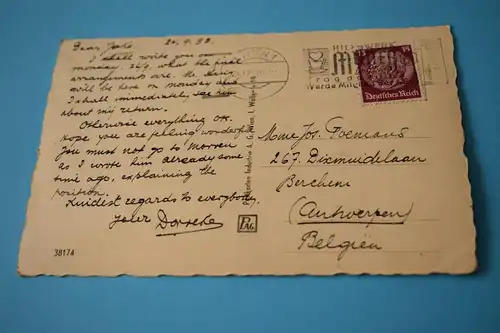 20.9.38.
Dear Jato.
I shall write you on
monday. 26/9 what the final
arrangements are. Mr
will be here on monday and
I shall immediately see him
about my return.
Otherwise everything OK.
Hope you are feeling wonderful
You must not go to
as I wrote him already some
time ago, explaining the
position.
Kindest regards to everybody.
Dorreke
38174
PAG
Mme Jos.
267. Dixmuidelaan
Berchem
(Antwerpen)
Belgien
15
Deutsches Reich
Werde Mitglied